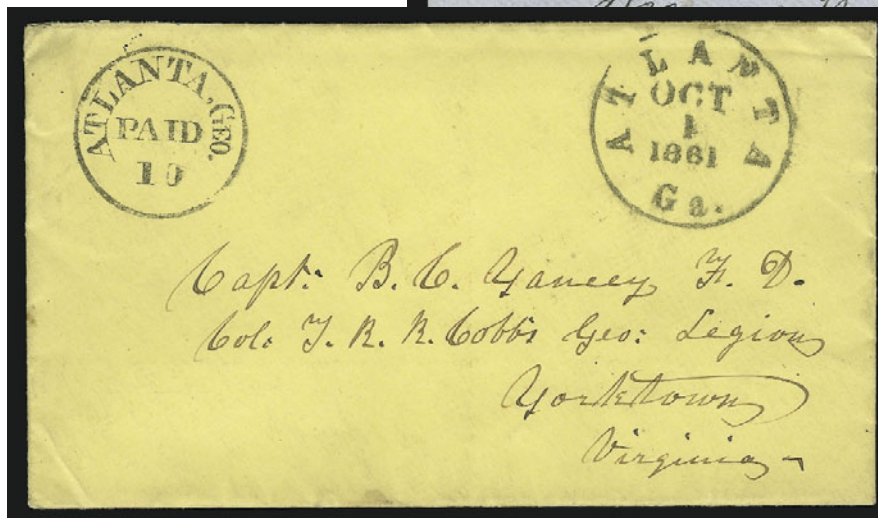 ATLANTA, GEO.
PAID
10
ATLANTA
OCT
1
1861
Ga.
Capt: B. C. Yancey F. D.
Col: T. R. R. Cobb's Geo: Legion
Yorktown
Virginia -